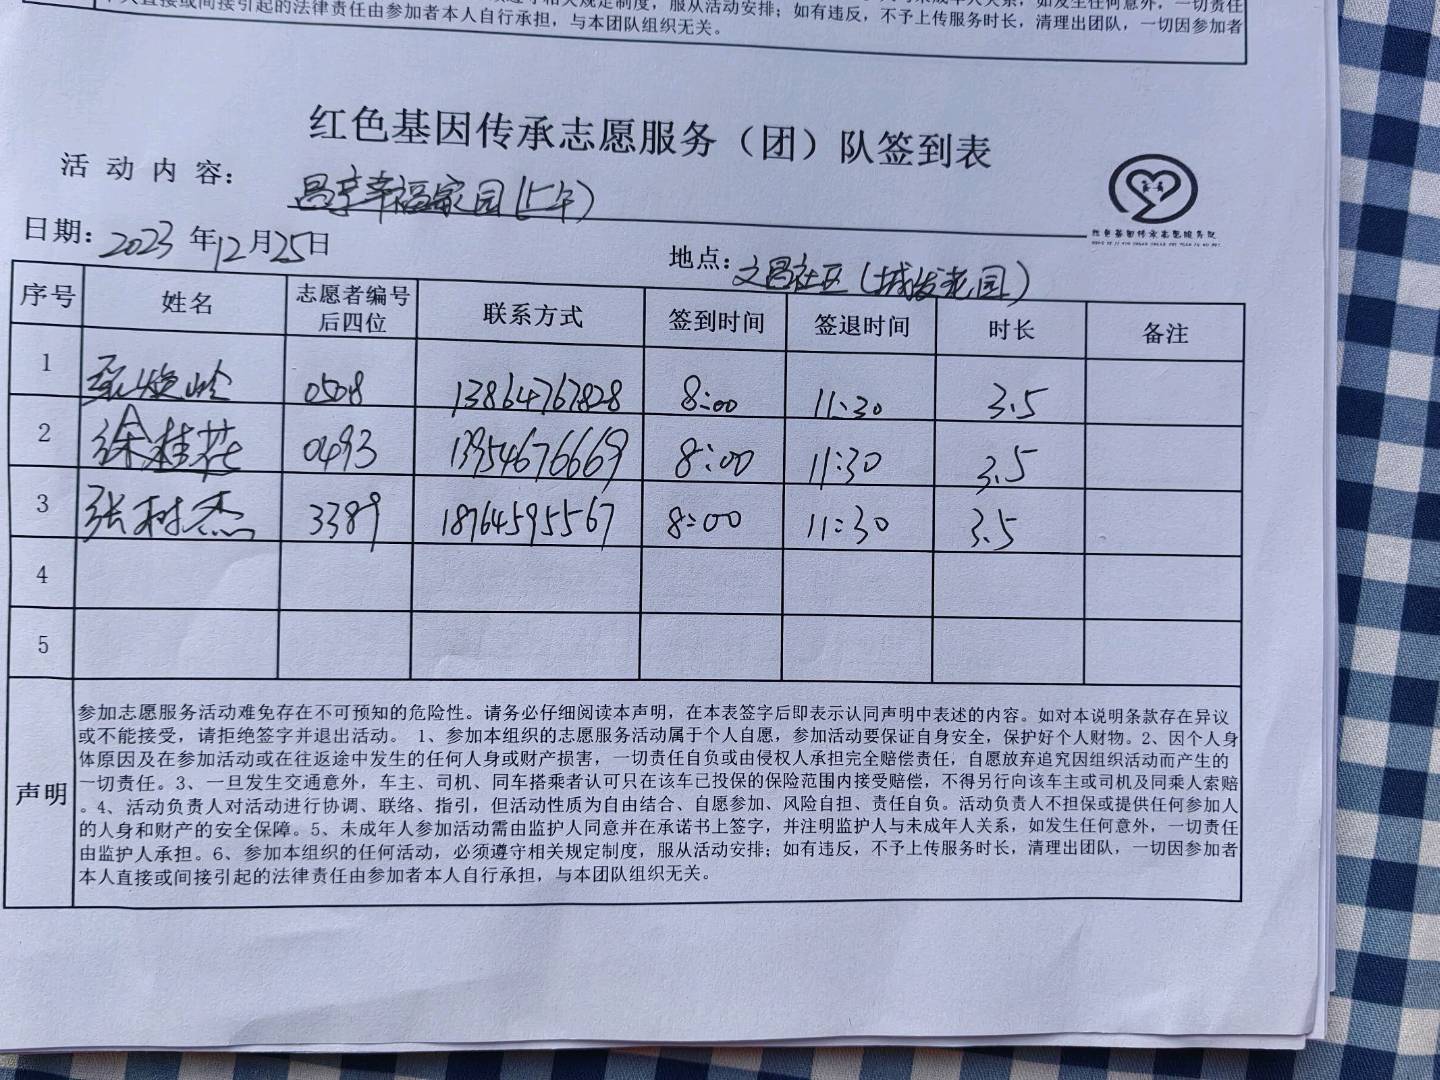 本人直接或间接引起的法律责任由参加者本人自行承担，与本团队组织无关。
红色基因传承志愿服务（团）队签到表
活动内容：昌享幸福家园（上午）
日期：2023年12月25日 地点：文昌社区（城发花园）
红色基因传承志愿服务队
序号 姓名 志愿者编号后四位 联系方式 签到时间 签退时间 时长 备注
1 0508 13864767828 8:00 11:30 3.5
2 徐桂花 0493 13954676669 8:00 11:30 3.5
3 张树杰 3389 18764595567 8:00 11:30 3.5
4
5
声明
参加志愿服务活动难免存在不可预知的危险性。请务必仔细阅读本声明，在本表签字后即表示认同声明中表述的内容。如对本说明条款存在异议
或不能接受，请拒绝签字并退出活动。 1、参加本组织的志愿服务活动属于个人自愿，参加活动要保证自身安全，保护好个人财物。2、因个人身
体原因及在参加活动或在往返途中发生的任何人身或财产损害，一切责任自负或由侵权人承担完全赔偿责任，自愿放弃追究因组织活动而产生的
一切责任。3、一旦发生交通意外，车主、司机、同车搭乘者认可只在该车已投保的保险范围内接受赔偿，不得另行向该车主或司机及同乘人索赔
。4、活动负责人对活动进行协调、联络、指引，但活动性质为自由结合、自愿参加、风险自担、责任自负。活动负责人不担保或提供任何参加人
的人身和财产的安全保障。5、未成年人参加活动需由监护人同意并在承诺书上签字，并注明监护人与未成年人关系，如发生任何意外，一切责任
由监护人承担。6、参加本组织的任何活动，必须遵守相关规定制度，服从活动安排；如有违反，不予上传服务时长，清理出团队，一切因参加者
本人直接或间接引起的法律责任由参加者本人自行承担，与本团队组织无关。